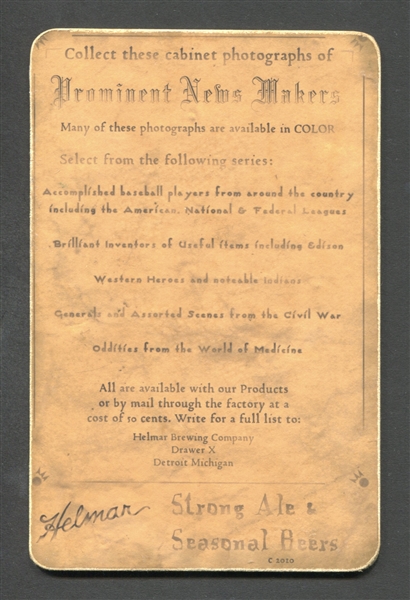 Collect these cabinet photographs of
Prominent News Makers
Many of these photographs are available in COLOR
Select from the following series:
Accomplished baseball players from around the country
including the American, National & Federal Leagues
Brilliant Inventors of Useful items including Edison
Western Heroes and noteable Indians
Generals and Assorted Scenes from the Civil War
Oddities from the World of Medicine
All are available with our Products
or by mail through the factory at a
cost of 10 cents. Write for a full list to:
Helmar Brewing Company
Drawer X
Detroit Michigan
Helmar
Strong Ale &
Seasonal Beers
C 2020